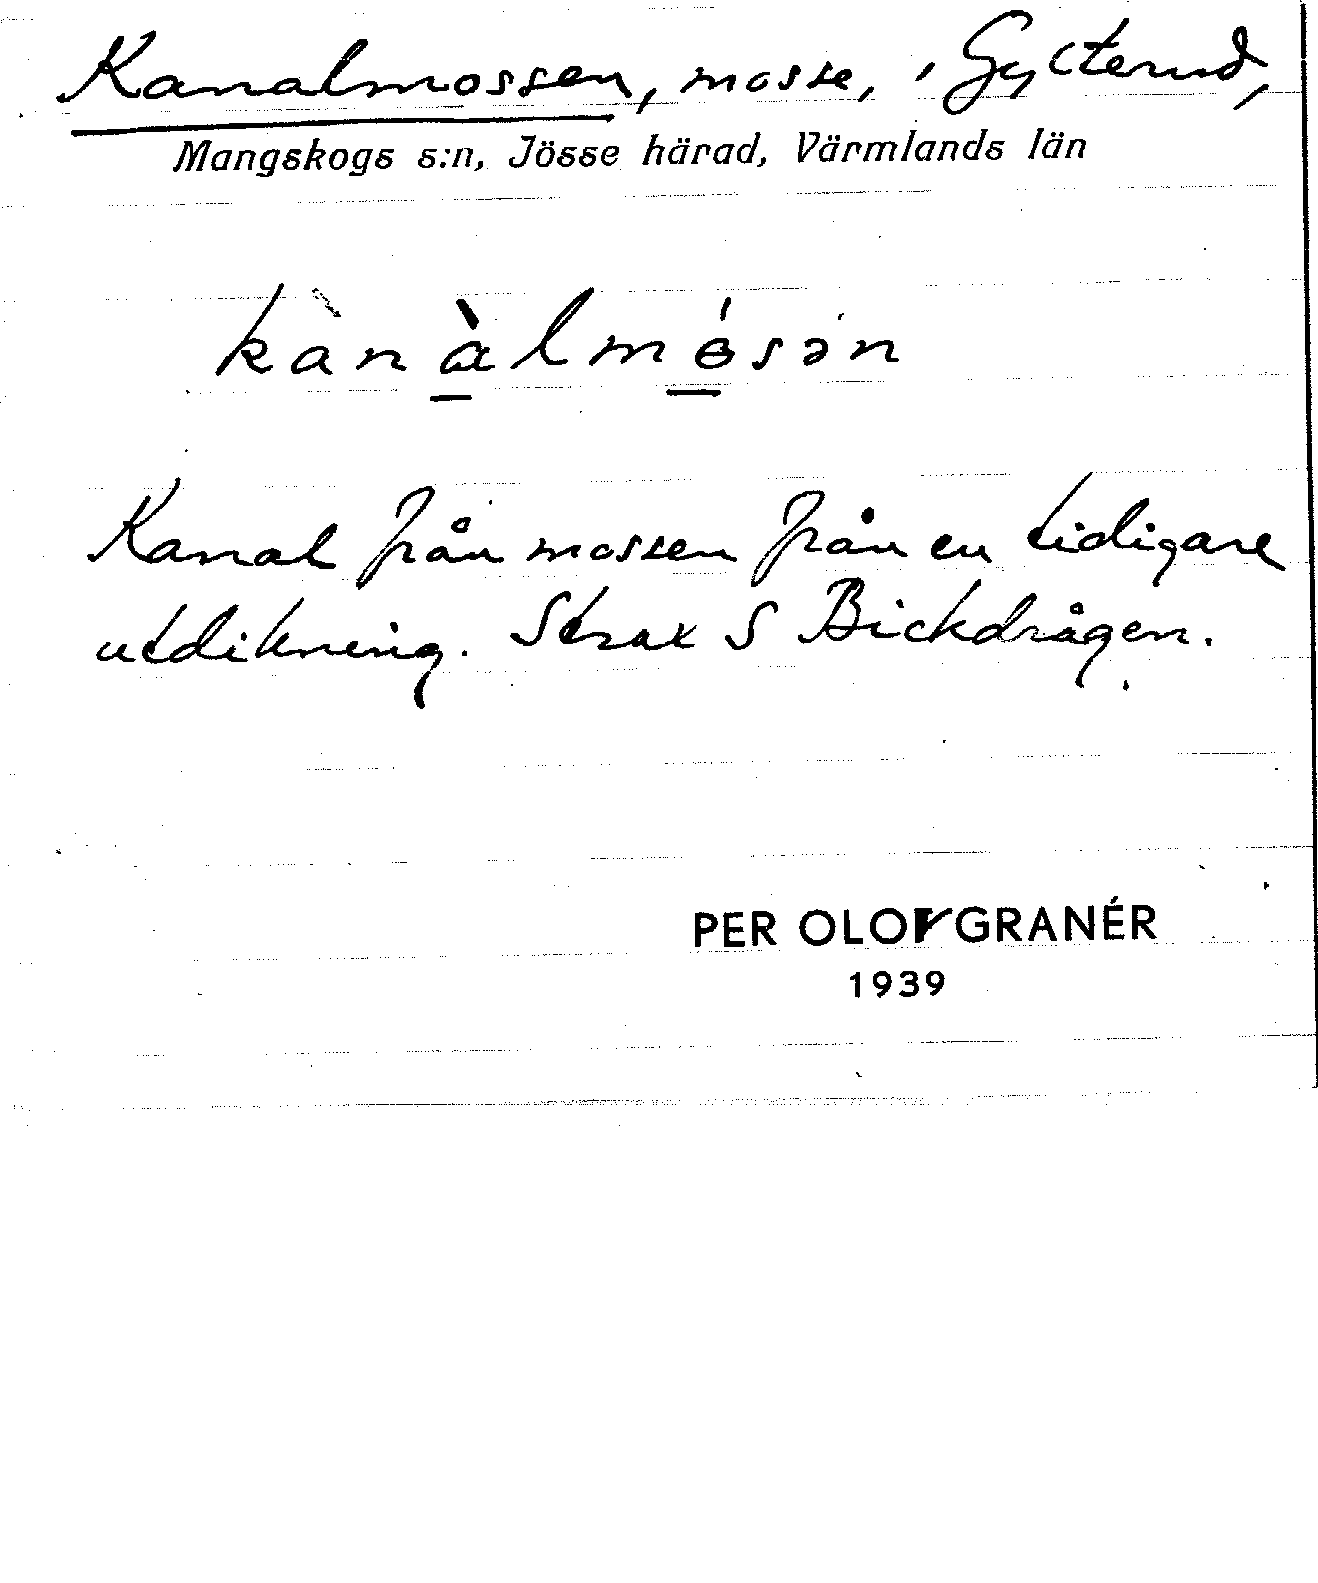 Kanalmossen, mosse, i Gylterud,
Mangskogs s:n, Jösse härad, Värmlands län
kànàlmósən
Kanal från mossen från en tidigare
utdikning. Strax S Bickdrågen.
PER OLOF GRANÉR
1939